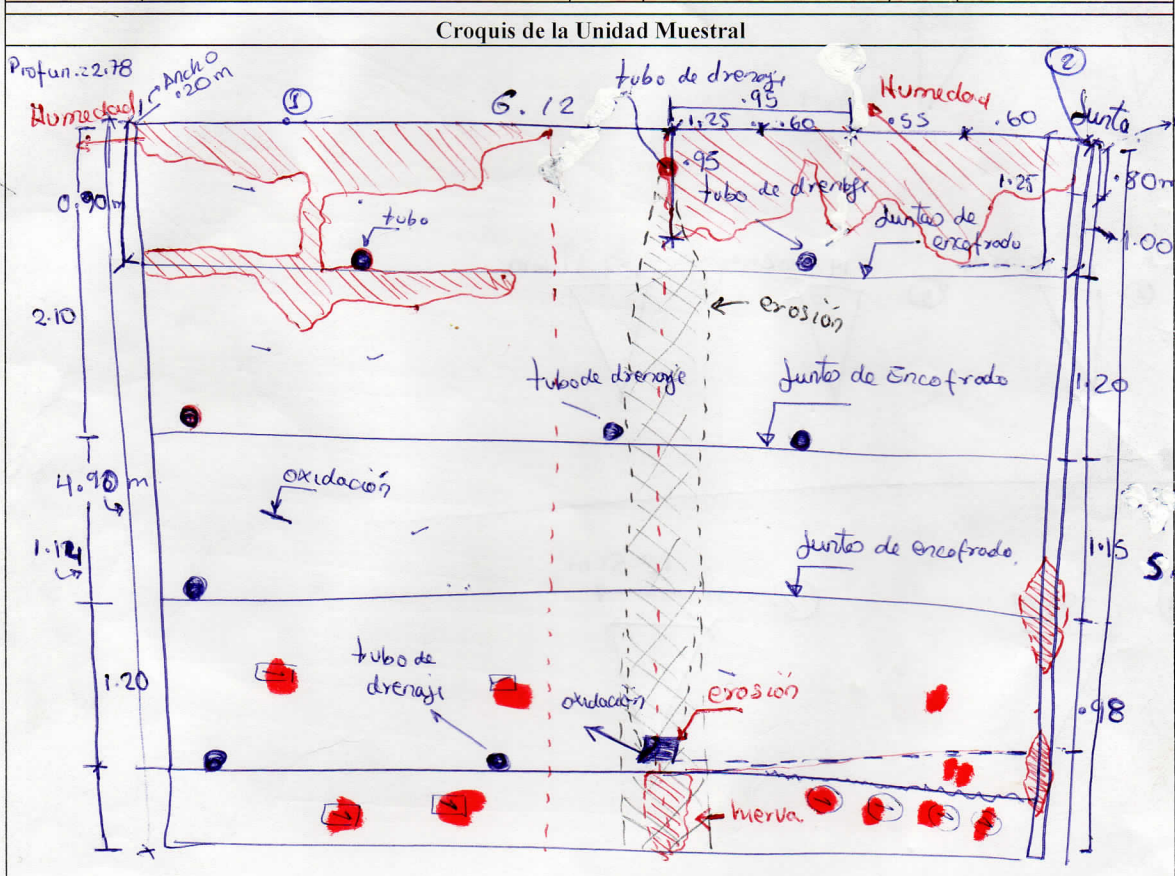 Croquis de la Unidad Muestral
Profun.=2.78
Ancho
.20 m
Humedad
1
6.12
tubo de drenaje
.95
1.25
.60
.55
.60
Humedad
2
Junta
.95
tubo de drenaje
1.25
.80m
0.90 m
tubo
Juntas de
encofrado
1.00
2.10
erosión
tubo de drenaje
Juntas de Encofrado
1.20
4.90 m
oxidación
1.14
Juntas de encofrado
1.15
5.
1.20
tubo de
drenaje
oxidación
erosión
.98
hierva